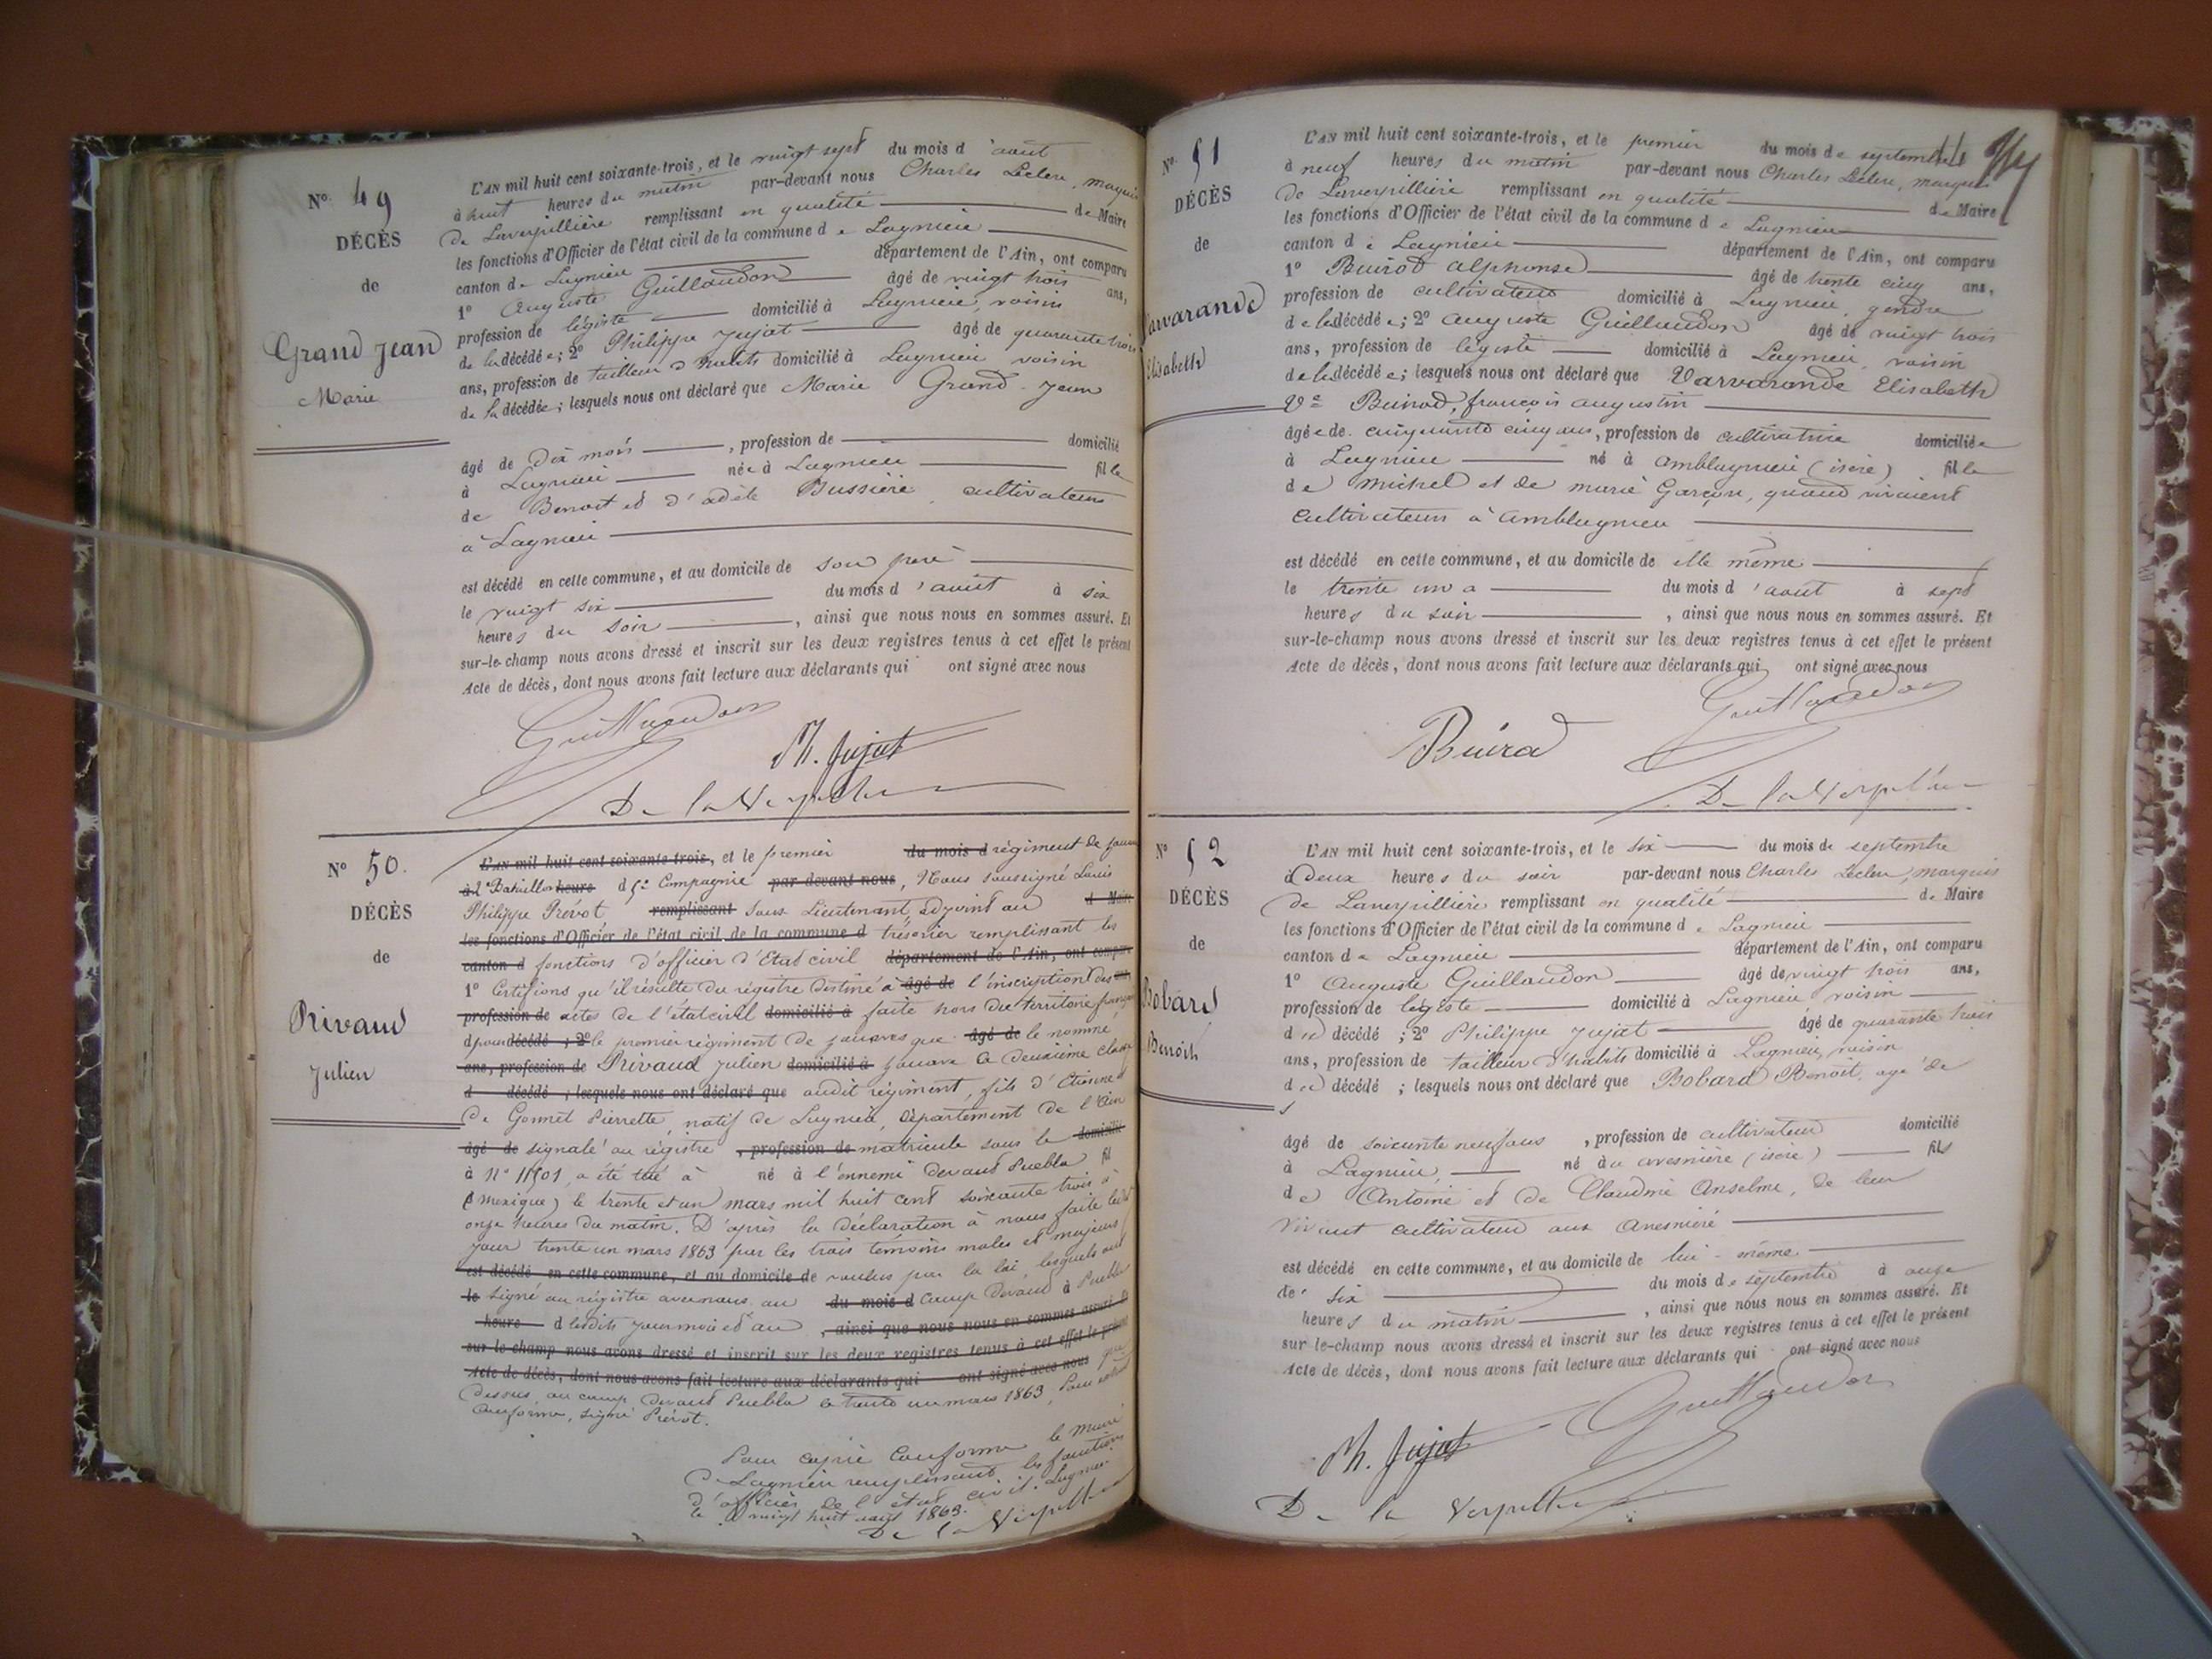 N° 49
DÉCÈS
de
Grand Jean
Marie
L'AN mil huit cent soixante-trois, et le vingt sept du mois d'août
à huit heures du matin par-devant nous Charles Leclerc, marquis
de Laverpillière remplissant en qualité de Maire
les fonctions d'Officier de l'état civil de la commune de Lagnieu
canton de Lagnieu département de l'Ain, ont comparu
1° Auguste Guillaudon âgé de vingt trois ans,
profession de légiste domicilié à Lagnieu, voisin
de la décédée; 2° Philippe Jujat âgé de quarante trois
ans, profession de tailleur d'habits domicilié à Lagnieu voisin
de la décédée; lesquels nous ont déclaré que Marie Grand-Jean
âgé de dix mois, profession de domicilié
à Lagnieu née à Lagnieu fille
de Benoit et d'adèle Bussière, cultivateurs
à Lagnieu
est décédé en cette commune, et au domicile de son père
le vingt six du mois d'août à six
heures du soir, ainsi que nous nous en sommes assuré. Et
sur-le-champ nous avons dressé et inscrit sur les deux registres tenus à cet effet le présent
Acte de décès, dont nous avons fait lecture aux déclarants qui ont signé avec nous
Guillaudon
Ph. Jujat
De la Verpillière
N° 50.
DÉCÈS
de
Privaud
Julien
L'AN mil huit cent soixante-trois, et le premier du mois d régiment de
à 2e Bataillon heure d 5e Compagnie par-devant nous, Nous soussigné Louis
Philippe Prévot, remplissant Sous Lieutenant, adjoint au d Maire
les fonctions d'Officier de l'état civil de la commune d trésorier remplissant les
canton d fonctions d'officier d'Etat civil département de l'Ain, ont comparu
1° Certifions qu'il résulte du régistre destiné à âgé de l'inscription des ans,
profession de actes de l'état civil domicilié à faite hors du territoire français
d pour décédé ; 2° le premier régiment de zouaves que âgé de le nommé
ans, profession de Privaud Julien domicilié à zouave de deuxième classe
d décédé ; lesquels nous ont déclaré que audit régiment, fils d'Etienne et
de Gonnet Pierrette, natif de Lagnieu, département de l'Ain
âgé de signalé au régistre, profession de matricule sous le domicilié
à N° 11501, a été tué à né à l'ennemi devant Puebla fil
(Mexique) le trente et un mars mil huit cent soixante trois à
onze heures du matin. D'après la déclaration à nous faite ledit
jour trente un mars 1863 par les trois témoins mâles et majeurs
est décédé en cette commune, et au domicile de voulus par la loi, lesquels ont
le signé au régistre avec nous au du mois d Camp devant à Puebla
heure d lesdits jour mois et an, ainsi que nous nous en sommes assuré. Et
sur-le-champ nous avons dressé et inscrit sur les deux registres tenus à cet effet le présent
Acte de décès, dont nous avons fait lecture aux déclarants qui ont signé avec nous que
dessus, au camp devant Puebla le trente un mars 1863, Pour extrait
conforme, signé Prévot.
Pour copie conforme le Maire
de Lagnieu remplissant les fonctions
d'officier de l'état civil. Lagnieu
le vingt huit août 1863.
De la Verpillière
N° 51
DÉCÈS
de
Varvarande
Elisabeth
L'AN mil huit cent soixante-trois, et le premier du mois de septembre
à neuf heures du matin par-devant nous Charles Leclerc, marquis
de Laverpillière remplissant en qualité de Maire
les fonctions d'Officier de l'état civil de la commune de Lagnieu
canton de Lagnieu département de l'Ain, ont comparu
1° Buirod alphonse âgé de trente cinq ans,
profession de cultivateur domicilié à Lagnieu, gendre
de la décédée; 2° auguste Guillaudon âgé de vingt trois
ans, profession de légiste domicilié à Lagnieu, voisin
de la décédée; lesquels nous ont déclaré que Varvarande Elisabeth
Ve Buirod, françois augustin
âgée de cinquante cinq ans, profession de cultivatrice domiciliée
à Lagnieu né à amblagnieu (isère) fille
de Michel et de marie Garçon, quand vivaient
cultivateurs à amblagnieu
est décédé en cette commune, et au domicile de elle même
le trente un a du mois d'août à sept
heures du soir, ainsi que nous nous en sommes assuré. Et
sur-le-champ nous avons dressé et inscrit sur les deux registres tenus à cet effet le présent
Acte de décès, dont nous avons fait lecture aux déclarants qui ont signé avec nous
Guillaudon
Buirod
De la Verpillière
N° 52
DÉCÈS
de
Bobard
Benoit
L'AN mil huit cent soixante-trois, et le six du mois de septembre
à deux heures du soir par-devant nous Charles Leclerc, marquis
de Laverpillière remplissant en qualité de Maire
les fonctions d'Officier de l'état civil de la commune de Lagnieu
canton de Lagnieu département de l'Ain, ont comparu
1° Auguste Guillaudon âgé de vingt trois ans,
profession de légiste domicilié à Lagnieu voisin
du décédé ; 2° Philippe Jujat âgé de quarante trois
ans, profession de tailleur d'habits domicilié à Lagnieu, voisin
du décédé ; lesquels nous ont déclaré que Bobard Benoit, agé de
âgé de soixante neuf ans, profession de cultivateur domicilié
à Lagnieu, né aux avesnière (isère) fils
de Antoine et de Claudine Anselme, de leur
vivant cultivateurs aux avesnière
est décédé en cette commune, et au domicile de lui-même
le six du mois de septembre à onze
heures du matin, ainsi que nous nous en sommes assuré. Et
sur-le-champ nous avons dressé et inscrit sur les deux registres tenus à cet effet le présent
Acte de décès, dont nous avons fait lecture aux déclarants qui ont signé avec nous
Guillaudon
Ph. Jujat
De la Verpillière